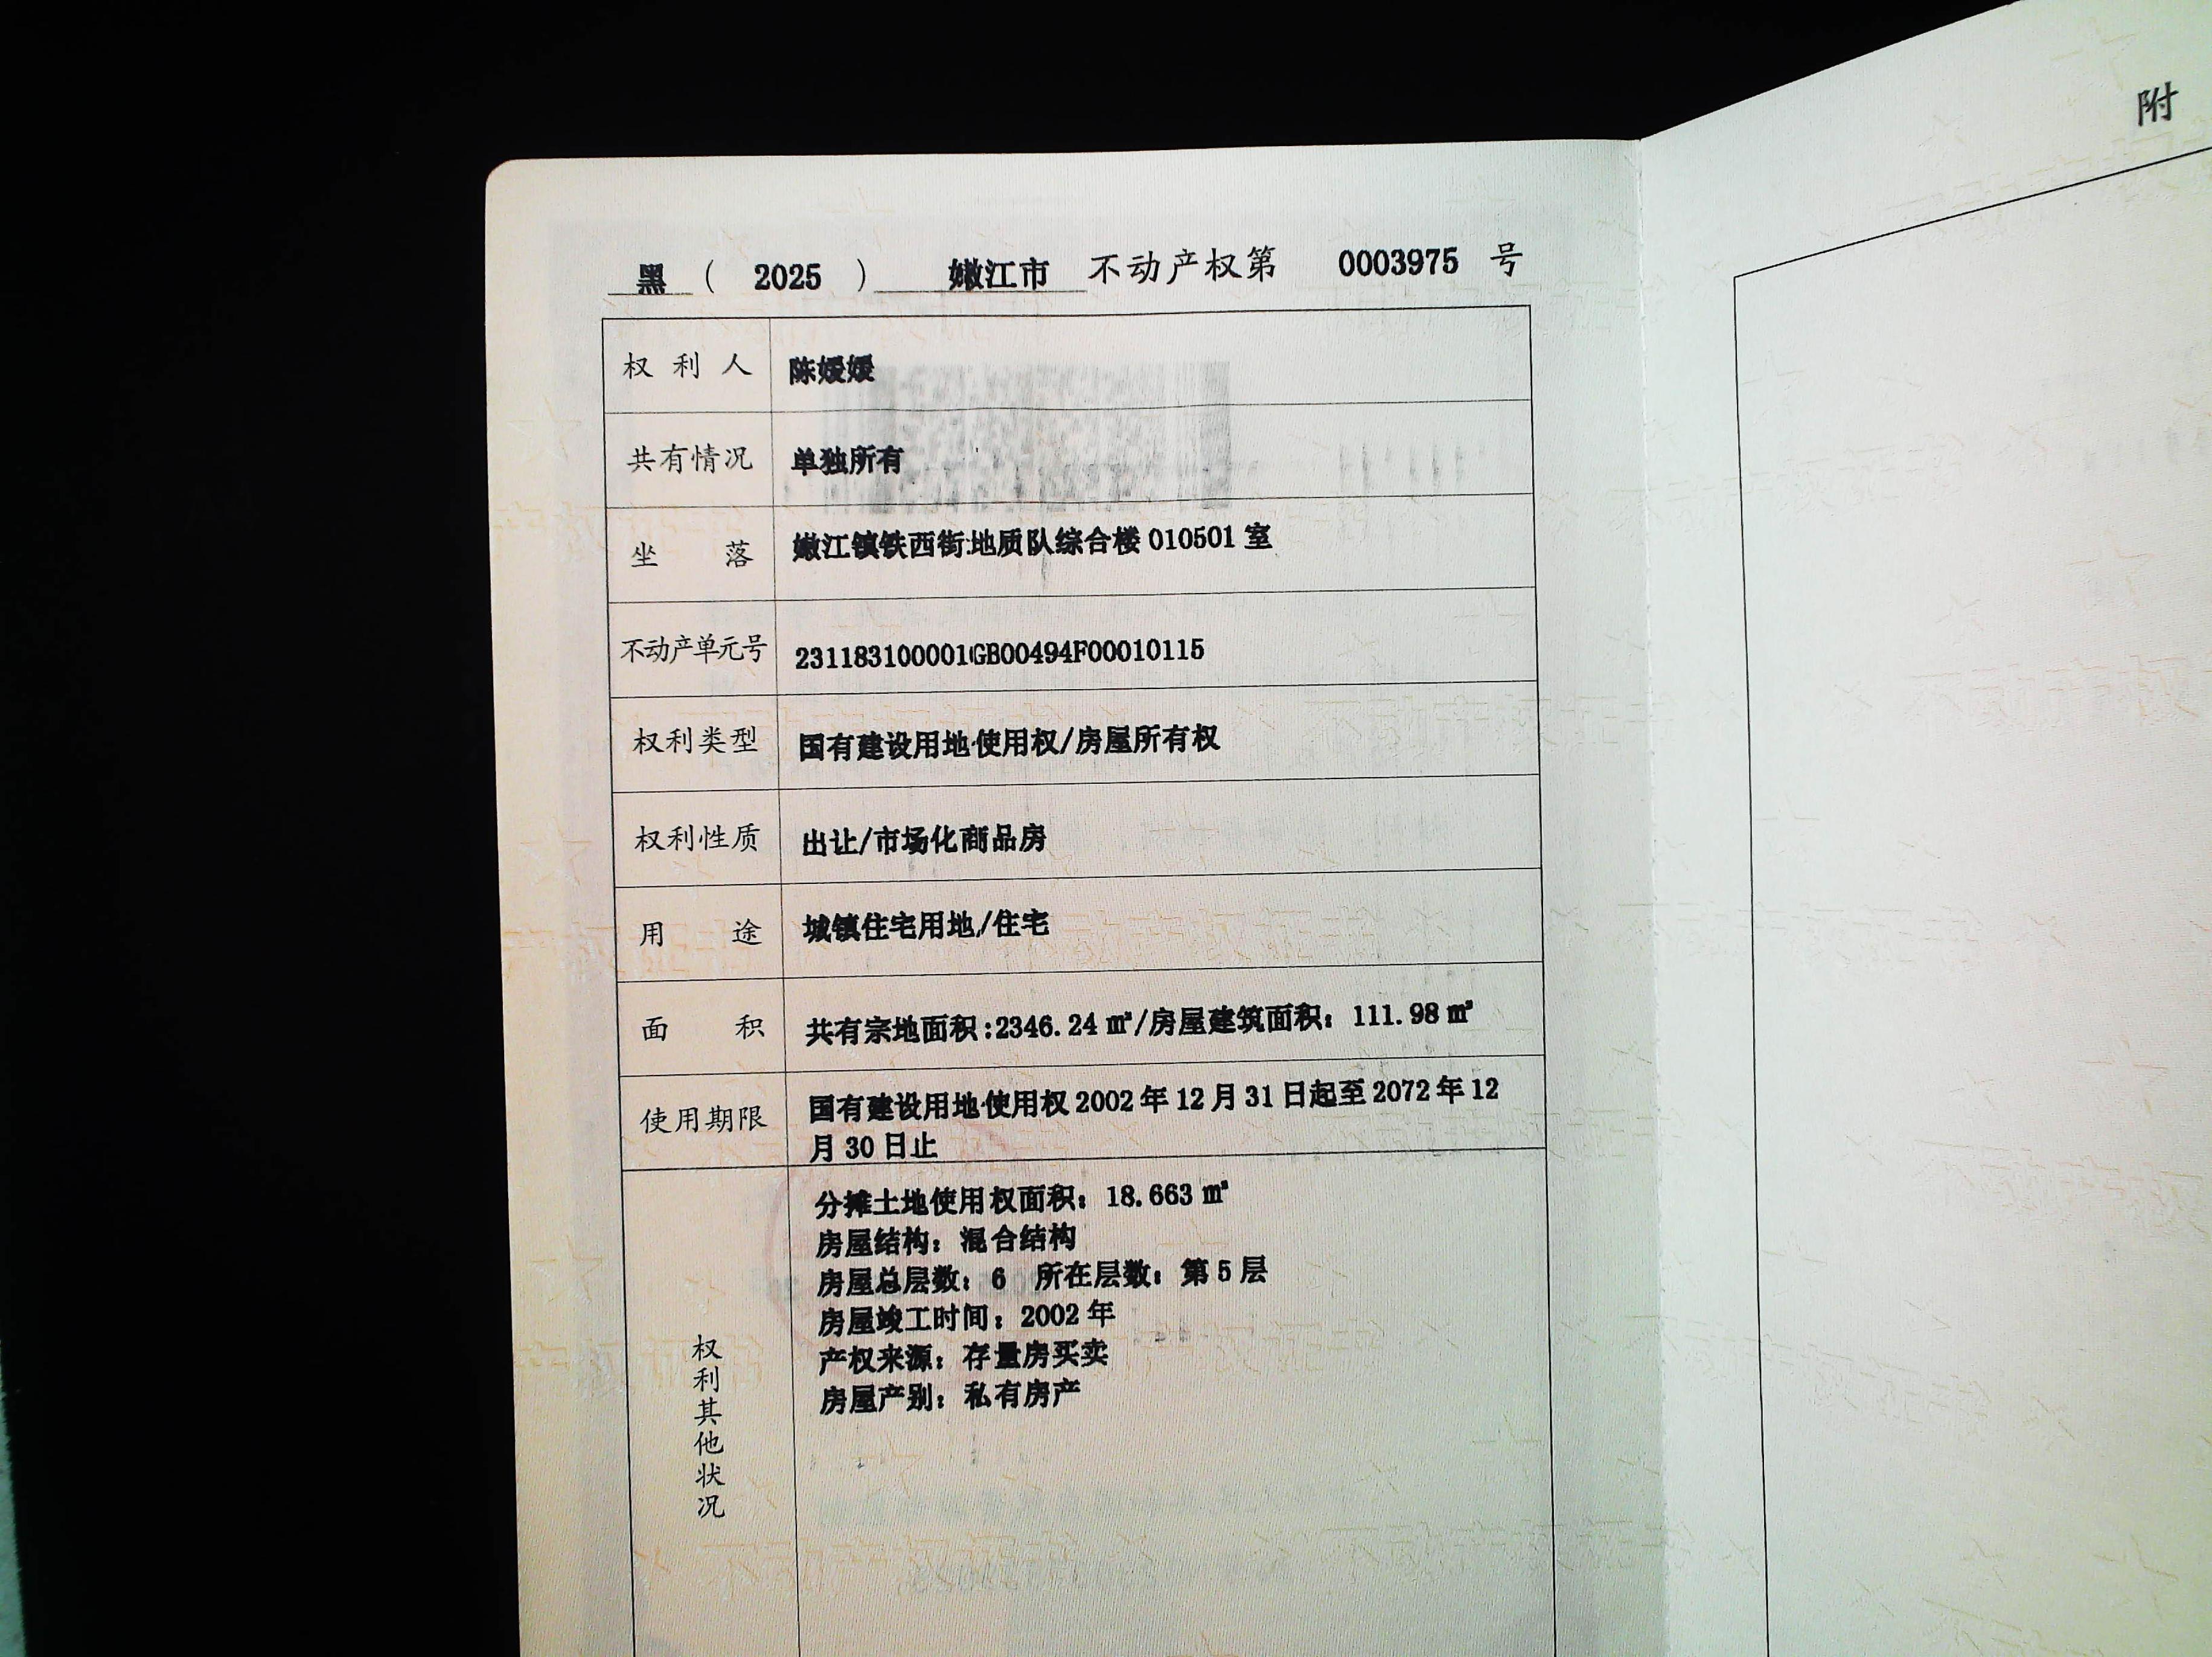 黑 ( 2025 ) 嫩江市 不动产权第 0003975 号
权利人 陈媛媛
共有情况 单独所有
坐落 嫩江镇铁西街地质队综合楼 010501 室
不动产单元号 231183100001GB00494F00010115
权利类型 国有建设用地使用权/房屋所有权
权利性质 出让/市场化商品房
用途 城镇住宅用地/住宅
面积 共有宗地面积:2346.24 ㎡/房屋建筑面积：111.98 ㎡
使用期限 国有建设用地使用权 2002 年 12 月 31 日起至 2072 年 12
月 30 日止
权利其他状况
分摊土地使用权面积：18.663 ㎡
房屋结构：混合结构
房屋总层数：6 所在层数：第 5 层
房屋竣工时间：2002 年
产权来源：存量房买卖
房屋产别：私有房产
附